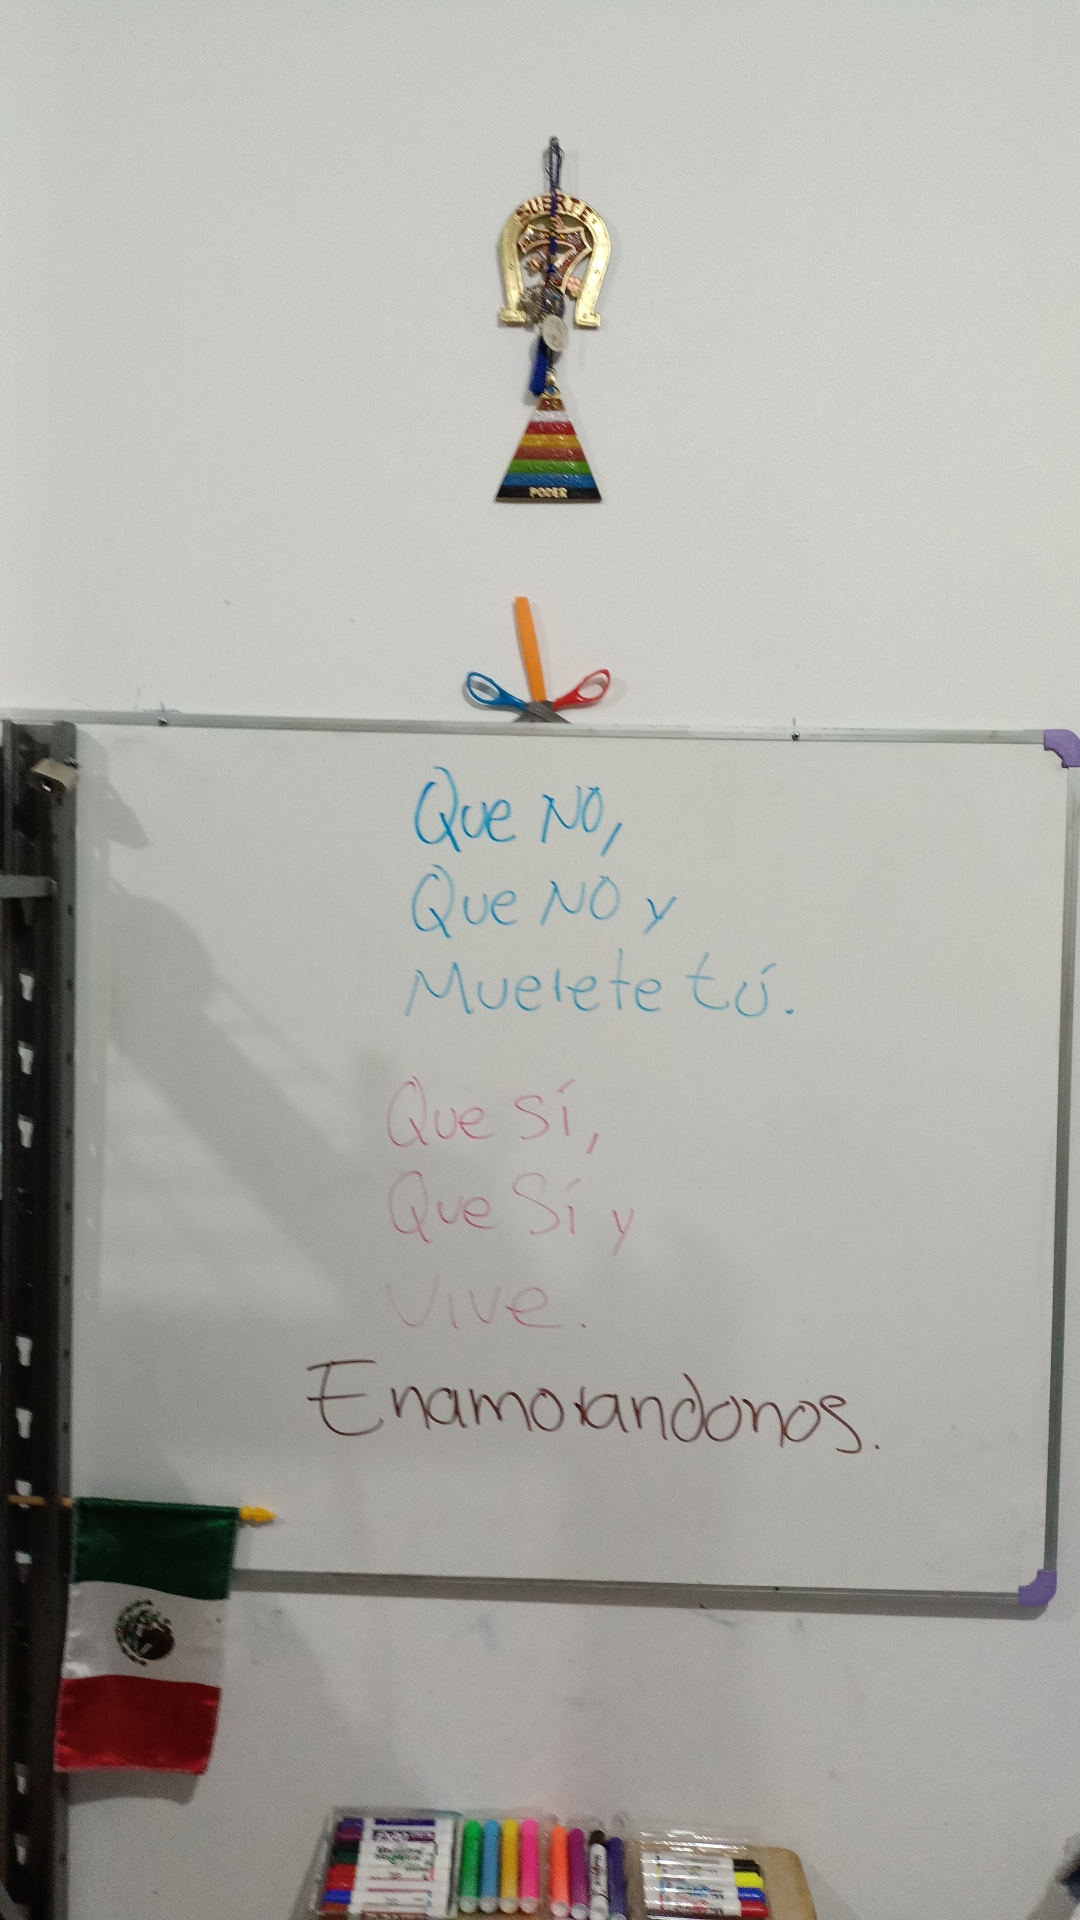 SUERTE
7
PODER
Que NO,
Que NO y
Muerete tú.
Que sí,
Que Sí y
Vive.
Enamorandonos.